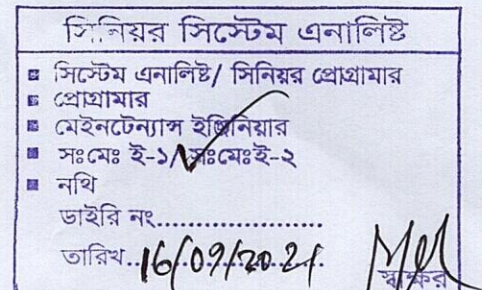 সিনিয়র সিস্টেম এনালিষ্ট
সিস্টেম এনালিষ্ট/ সিনিয়র প্রোগ্রামার
প্রোগ্রামার
মেইনটেন্যান্স ইঞ্জিনিয়ার
সঃমেঃ ই-১/সঃমেঃই-২
নথি
ডাইরি নং.....................
তারিখ..16/09/2021
স্বাক্ষর